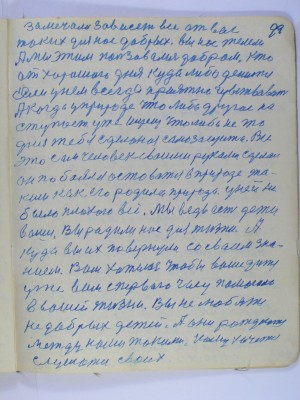 замечали зависет все от вас
таких для нас добрых. вы нас жалели
А мы этим пользовались добром. Кто
от хорошого дня куда либо денится
Если у нем всегда приятно чувствовать
А когда у природе что либо другое на
ступает уже ищеш чтолибо не то
для тебя сделаная самозащита. Все
это сам человек своими руками сделал
он побоялся оставатся в природе та-
ким как его родила природа. у ней не
было плохого всё. Мы ведь есть дети
ваши. Вы родили нас для жизни. А
куда вы их повернули со своем зна-
нием. Вам хотелос чтобы ваше дитя
уже вам с первого часу помогало
в вашей жизни. Вы не любите
не добрых детей. А они рождаются
между нами такими. Кому хочется
слухати своих